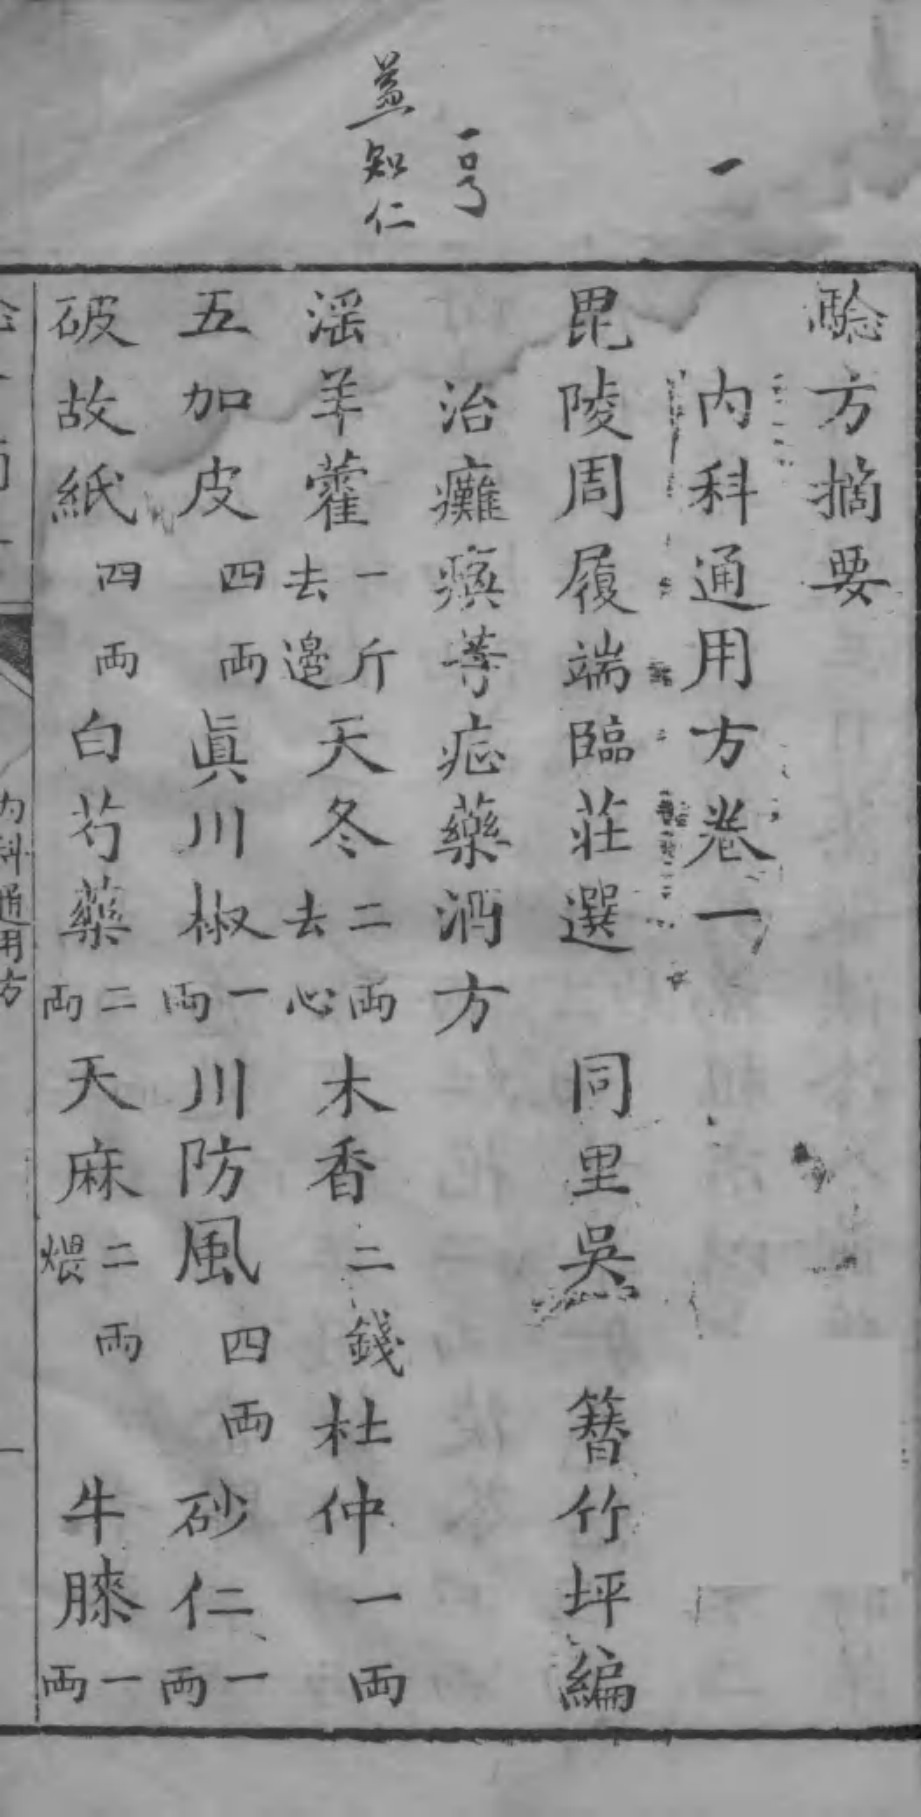 一
一
益知仁
驗方摘要
內科通用方卷一
毘陵周履端臨莊選 同里吳 簪竹坪編
治癱瘓等症藥酒方
淫羊藿一斤去邊天冬二両去心木香二錢杜仲一両
五加皮四両眞川椒一両川防風四両砂仁一両
破故紙四両白芍藥二両天麻二両煨牛膝一両
內科通用方
一